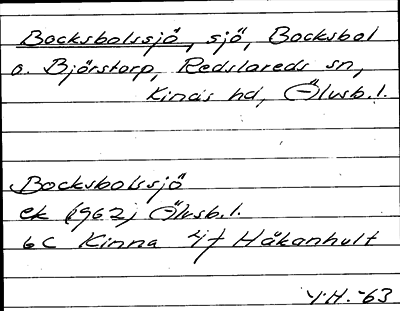 Bocksbolssjö, sjö, Bocksbol
o. Björstorp, Redslareds sn,
Kinds hd, Älvsb. l.
Bocksbolssjö
ek (1962) Älvsb. l.
6C Kinna 4f Håkanhult
Y.H. -63